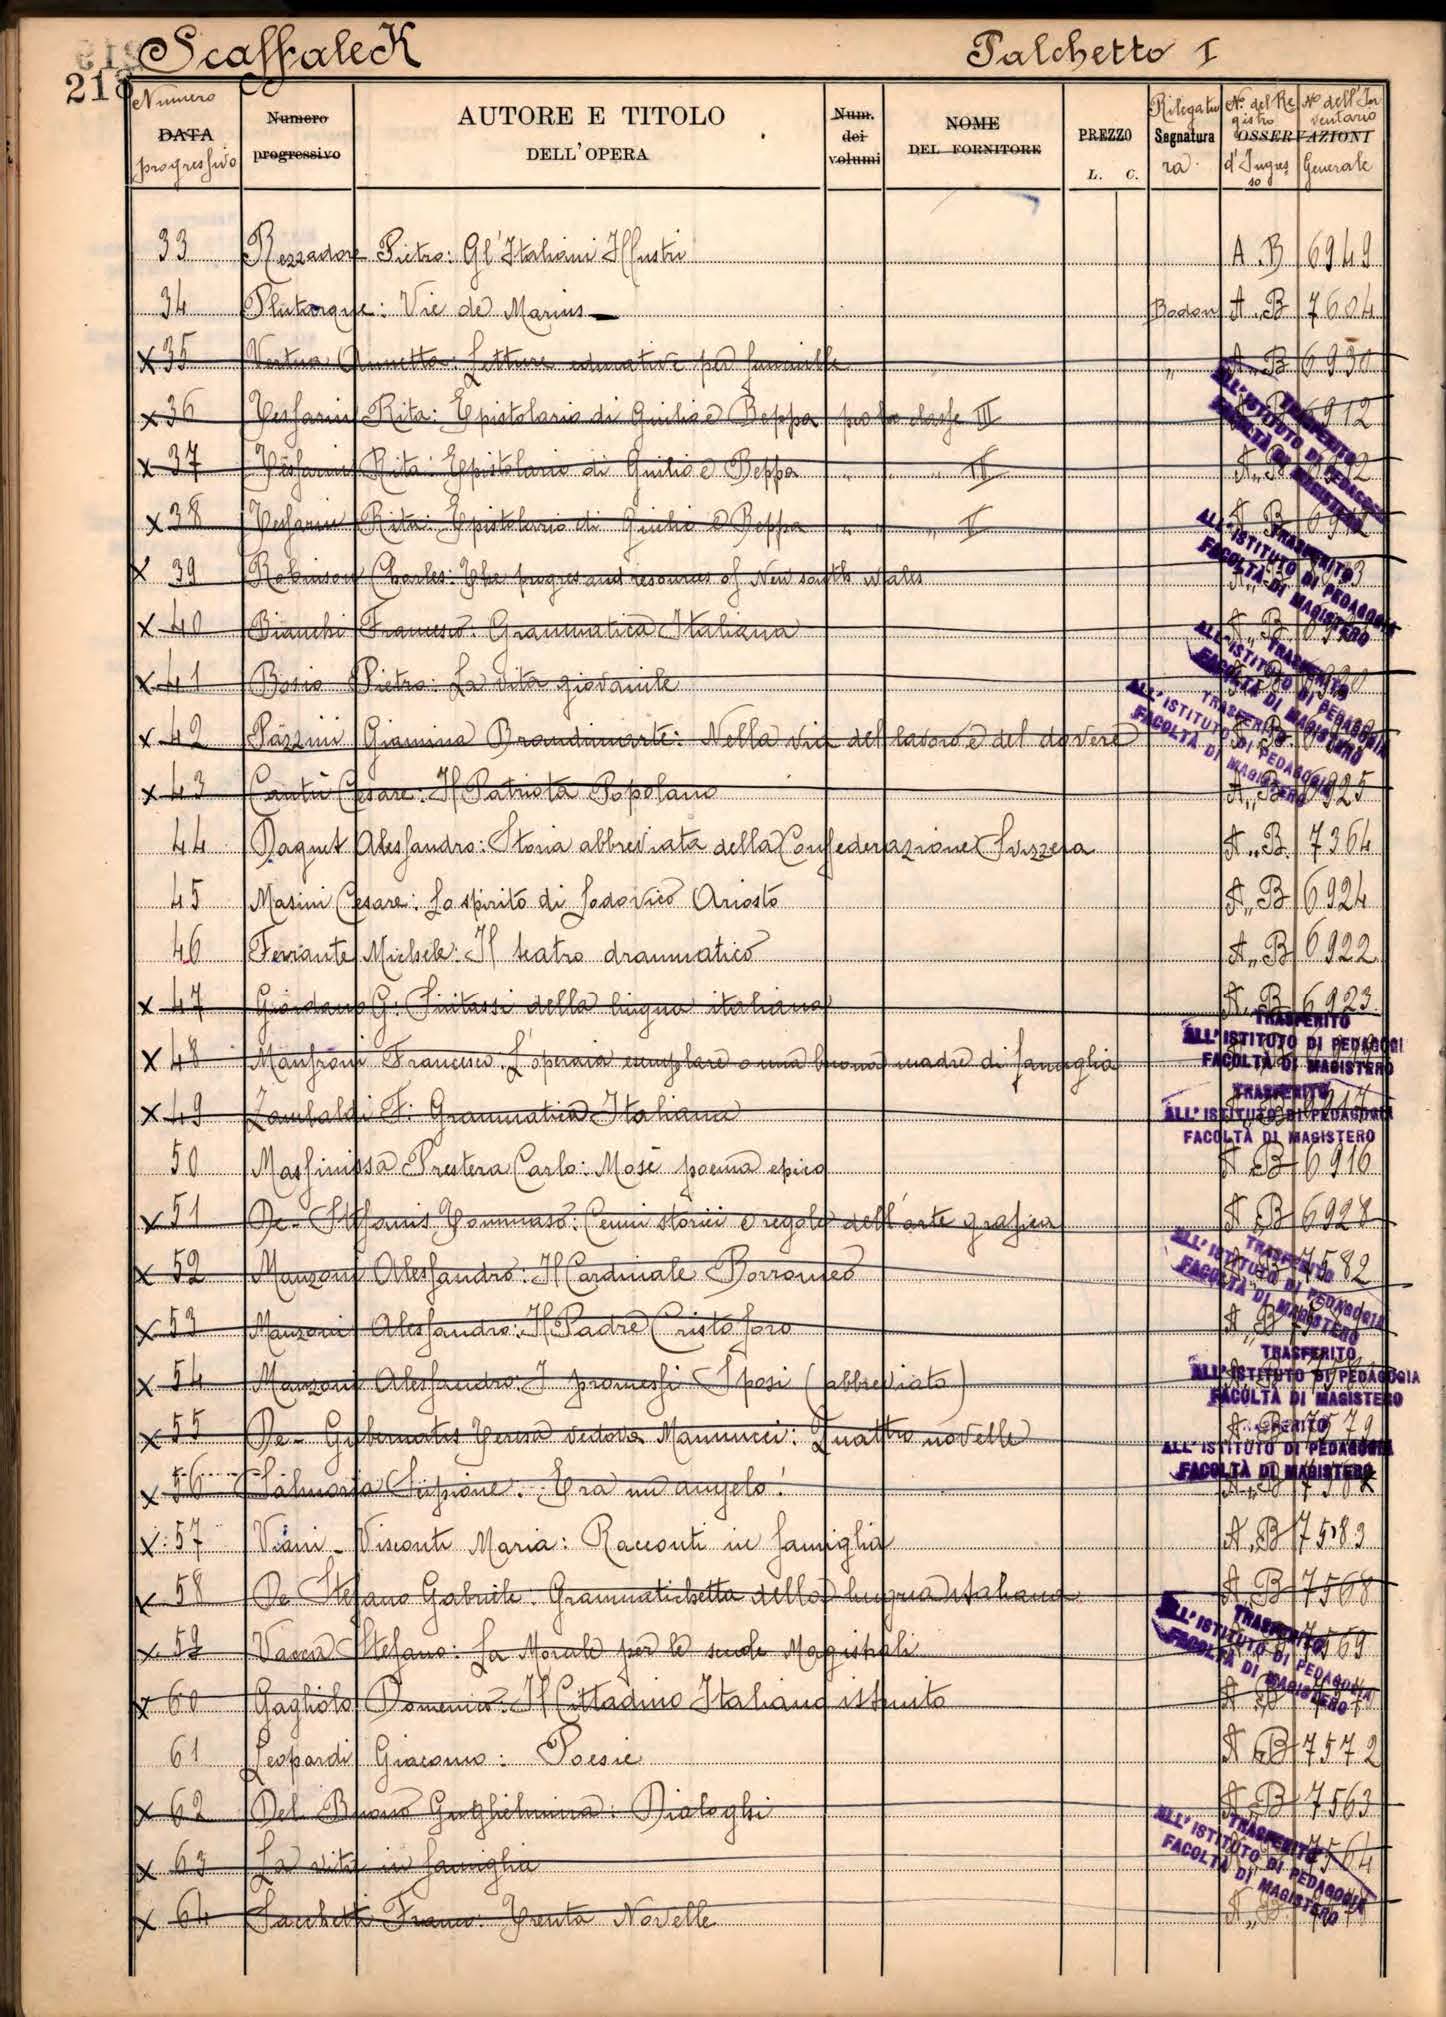 Scaffale K Palchetto I
218
Numero DATA progressivo Numero progressivo AUTORE E TITOLO DELL'OPERA Num. dei volumi NOME DEL FORNITORE PREZZO L. C. Rilegatu Segnatura ra N.o del Re gistro d'Ingres so OSSERVAZIONI No dell'In ventario Generale
33 Rezzadore Pietro: Gl'Italiani Illustri A B 6949
34 Plutarque: Vie de Marius Bodon A „ B 7604
X 35 Vertua Annetta: Letture educative per fanciulle „ A „ B 6930
X 36 Rita: Epistolario di Giulio e Beppa per la classe III B 6912
X 37 Rita: Epistolario di Giulio e Beppa „ „ II A „ B
X 38 Rita: Epistolario di Giulio e Beppa „ „ A B
X 39 Robinson Charles: The progres and resources of New south wales
X 40 Bianchi Francesco: Grammatica Italiana A „ B
X 41 Bosio Pietro: La vita giovanile
X 42 Pazzini Giannina Brandimarte: Nella via del lavoro e del dovere
X 43 Cantù Cesare: Il Patriota Popolano A „ B 6925
44 Daguet Alessandro: Storia abbreviata della Confederazione Svizzera A „ B 7364
45 Masini Cesare: Lo spirito di Lodovico Ariosto A „ B 6924
46 Ferrante Michele: Il teatro drammatico A „ B 6922
X 47 Giordano G: Sintassi della lingua italiana A „ B 6923
X 48 Manfroni Francesco: L'operaia esemplare o una buona madre di famiglia
X 49 Zambaldi F: Grammatica Italiana
50 Massinissa Prestera Carlo: Mosè poema epico A B 6916
X 51 De-Stefanis Tommaso: Cenni storici e regole dell'arte grafica A B 6928
X 52 Manzoni Alessandro: Il Cardinale Borromeo 7582
X 53 Manzoni Alessandro: Il Padre Cristoforo A „ B
X 54 Manzoni Alessandro: I promessi Sposi (abbreviato)
X 55 De-Gubernatis Teresa vedova Mannucci: Quattro novelle A B 7579
X 56 Scipione: Era un angelo!
X 57 Viani-Visconti Maria: Racconti in famiglia A „ B 7583
X 58 De Stefano Gabriele: Grammatichetta della lingua italiana A B 7568
X 59 Vacca Stefano: La Morale per le scuole Magistrali 7569
X 60 Gagliolo Domenico: Il Cittadino Italiano istruito
61 Leopardi Giacomo: Poesie A B 7572
X 62 Del Buono Guglielmina: Dialoghi A B 7563
X 63 La vita in famiglia 7564
X 64 Sacchetti Franco: Trenta Novelle A „ B
TRASFERITO
ALL'ISTITUTO DI PEDAGOGIA
FACOLTÀ DI MAGISTERO
TRASFERITO
ALL'ISTITUTO DI PEDAGOGIA
FACOLTÀ DI MAGISTERO
TRASFERITO
ALL'ISTITUTO DI PEDAGOGIA
FACOLTÀ DI MAGISTERO
TRASFERITO
ALL'ISTITUTO DI PEDAGOGIA
FACOLTÀ DI MAGISTERO
TRASFERITO
ALL'ISTITUTO DI PEDAGOGI
FACOLTÀ DI MAGISTERO
TRASFERITO
ALL'ISTITUTO DI PEDAGOGIA
FACOLTÀ DI MAGISTERO
TRASFERITO
ALL'ISTITUTO DI PEDAGOGIA
FACOLTÀ DI MAGISTERO
TRASFERITO
ALL'ISTITUTO DI PEDAGOGIA
FACOLTÀ DI MAGISTERO
ALL'ISTITUTO DI PEDAGOGIA
FACOLTÀ DI MAGISTERO
TRASFERITO
ALL'ISTITUTO DI PEDAGOGIA
FACOLTÀ DI MAGISTERO
TRASFERITO
ALL'ISTITUTO DI PEDAGOGIA
FACOLTÀ DI MAGISTERO